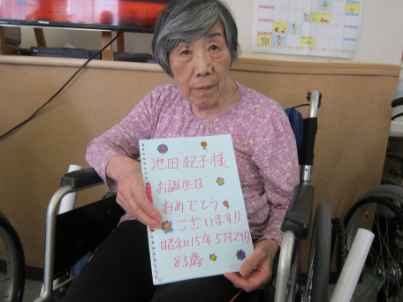 池田 紀子様
お誕生日
おめでとう
ございます!!
昭和15年5月29日
83歳